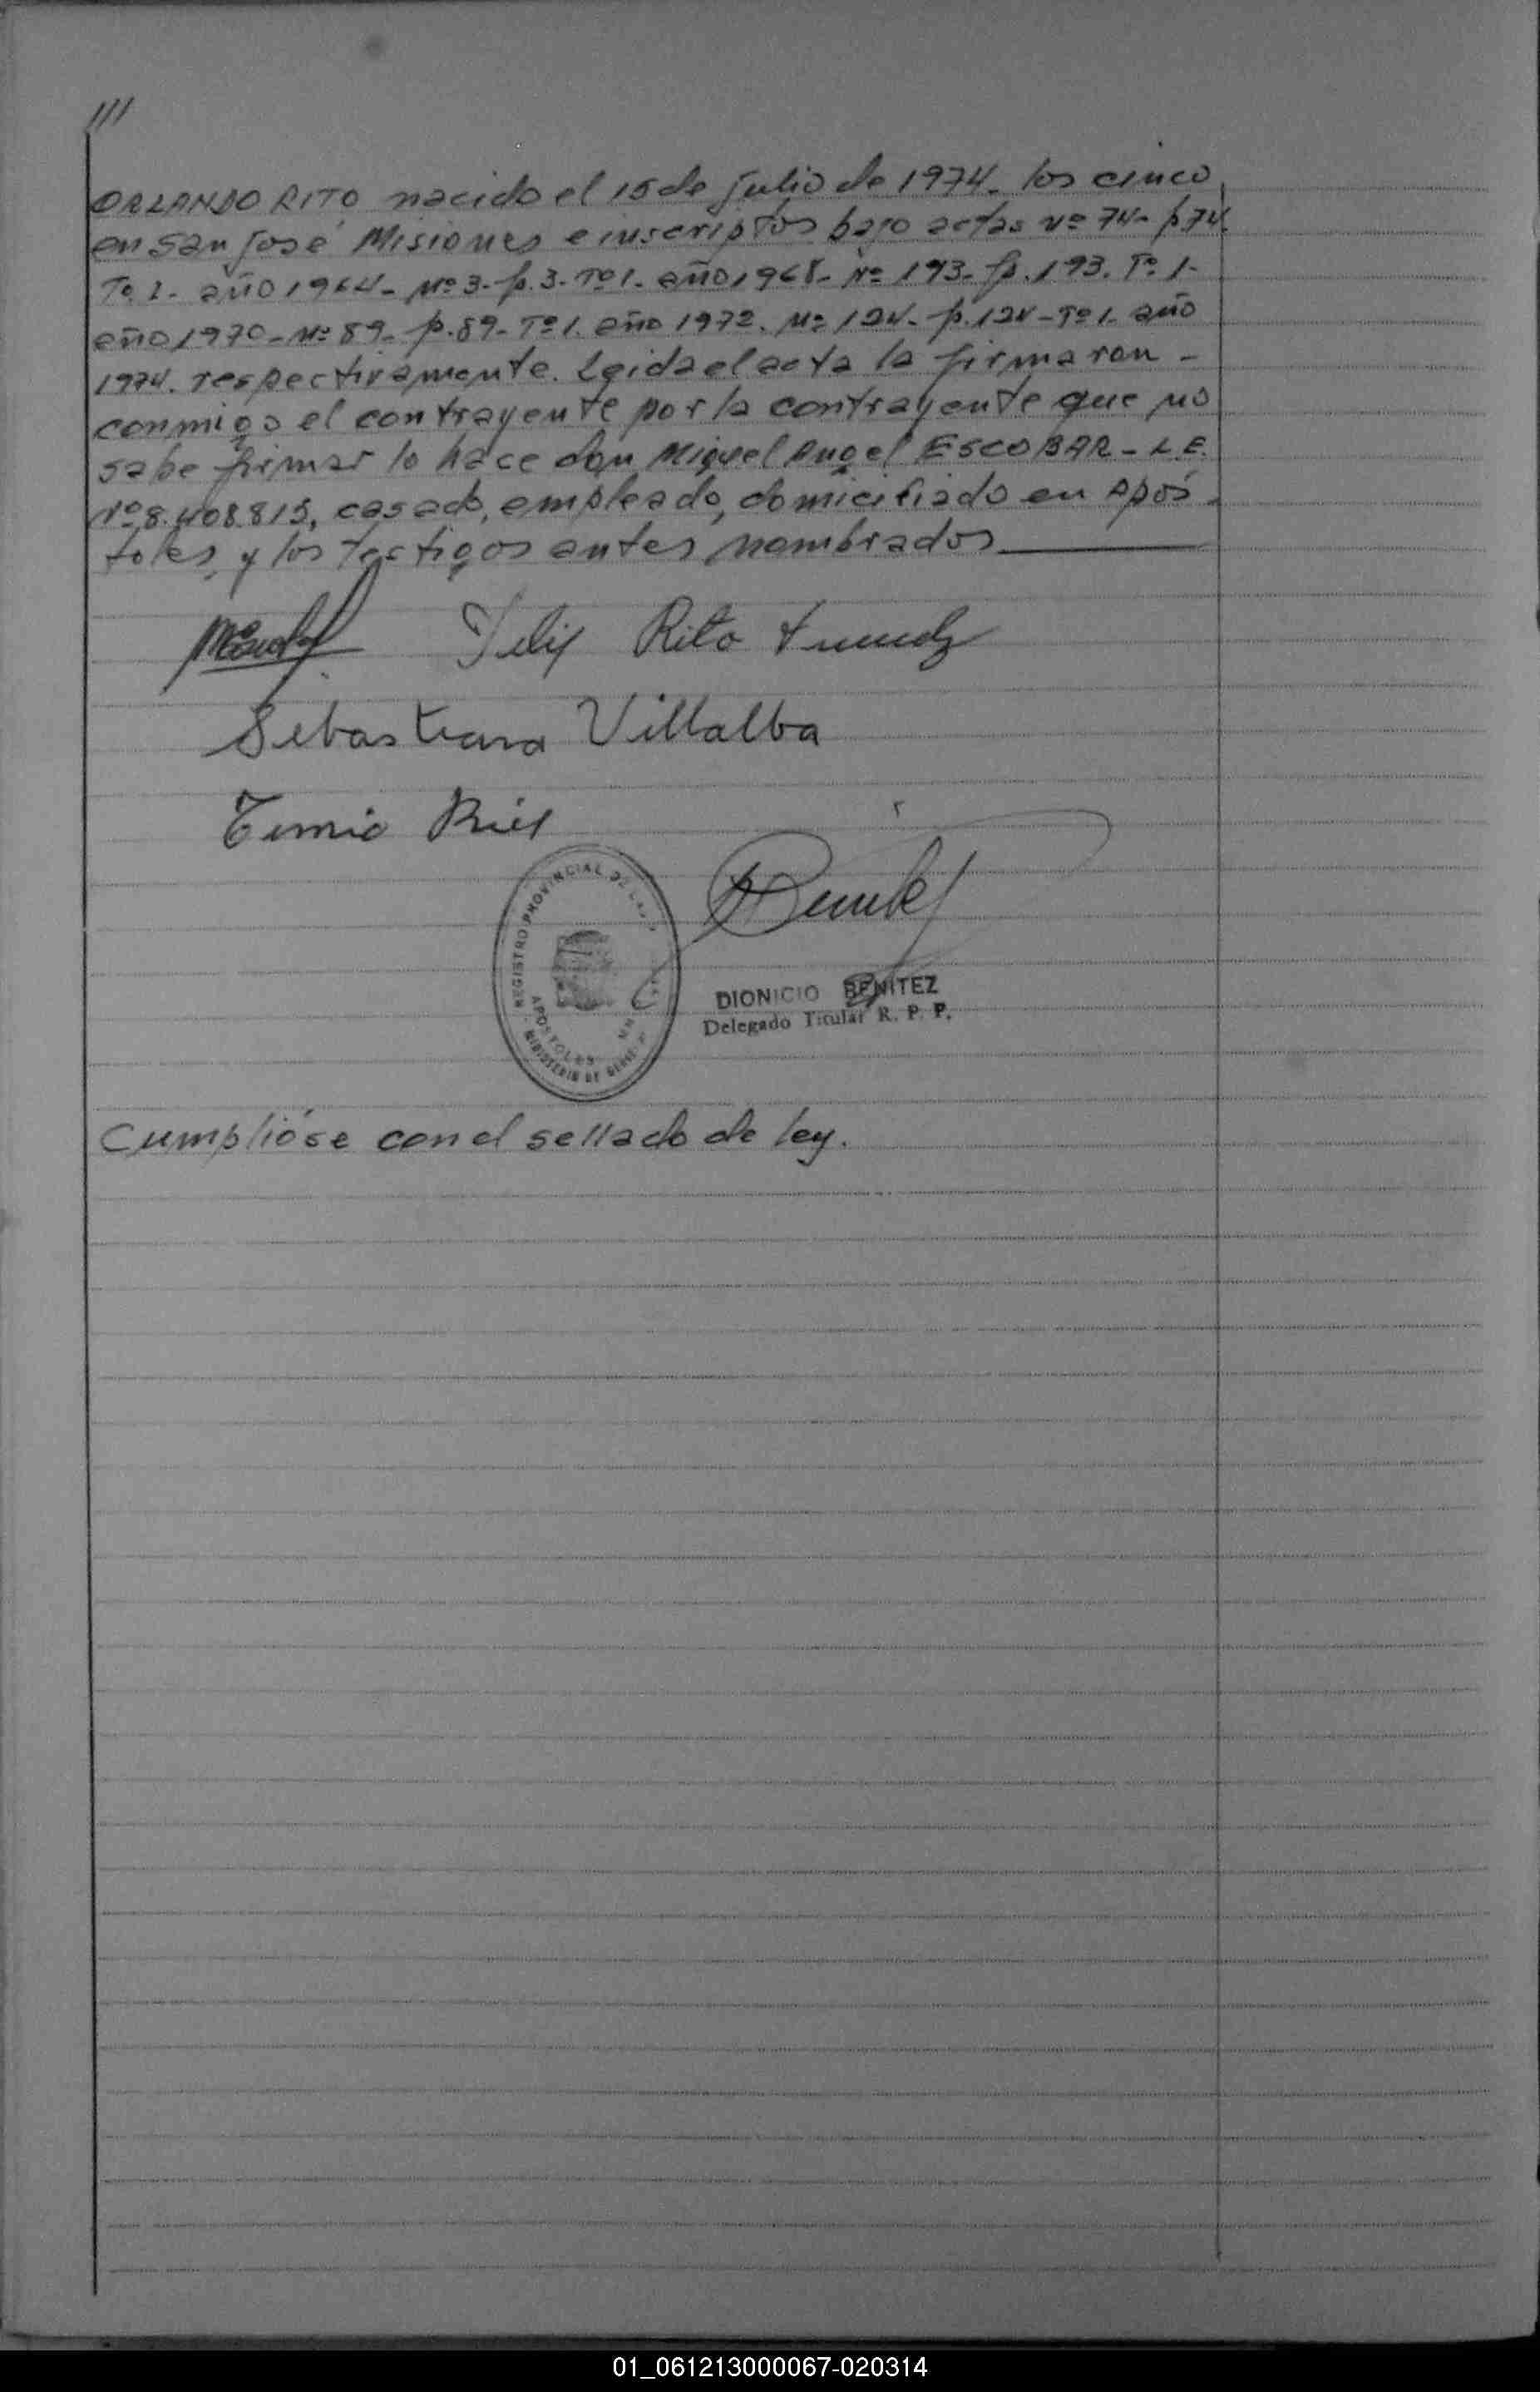 ///
ORLANDO RITO nacido el 15 de julio de 1974. los cinco
en San José Misiones e inscriptos bajo actas Nº 74- p 74.
Tº 1- año 1964- Nº 3- p. 3- Tº 1. año 1968- Nº 193- p. 193. Tº 1-
año 1970- Nº 89- p. 89- Tº 1. año 1972. Nº 124- p. 124- Tº 1- año
1974. respectivamente. Leida el acta la firmaron -
conmigo el contrayente por la contrayente que no
sabe firmar lo hace don Miguel Angel ESCOBAR - L.E.
Nº 8.408.815, casado, empleado, domiciliado en Após
toles, y los testigos antes nombrados
Felix Rito
Sebastiana Villalba
REGISTRO PROVINCIAL DE LAS
APOSTOLES
MINISTERIO DE
DIONICIO BENITEZ
Delegado Titular R. P. P.
Cumplióse con el sellado de ley.
01_061213000067-020314